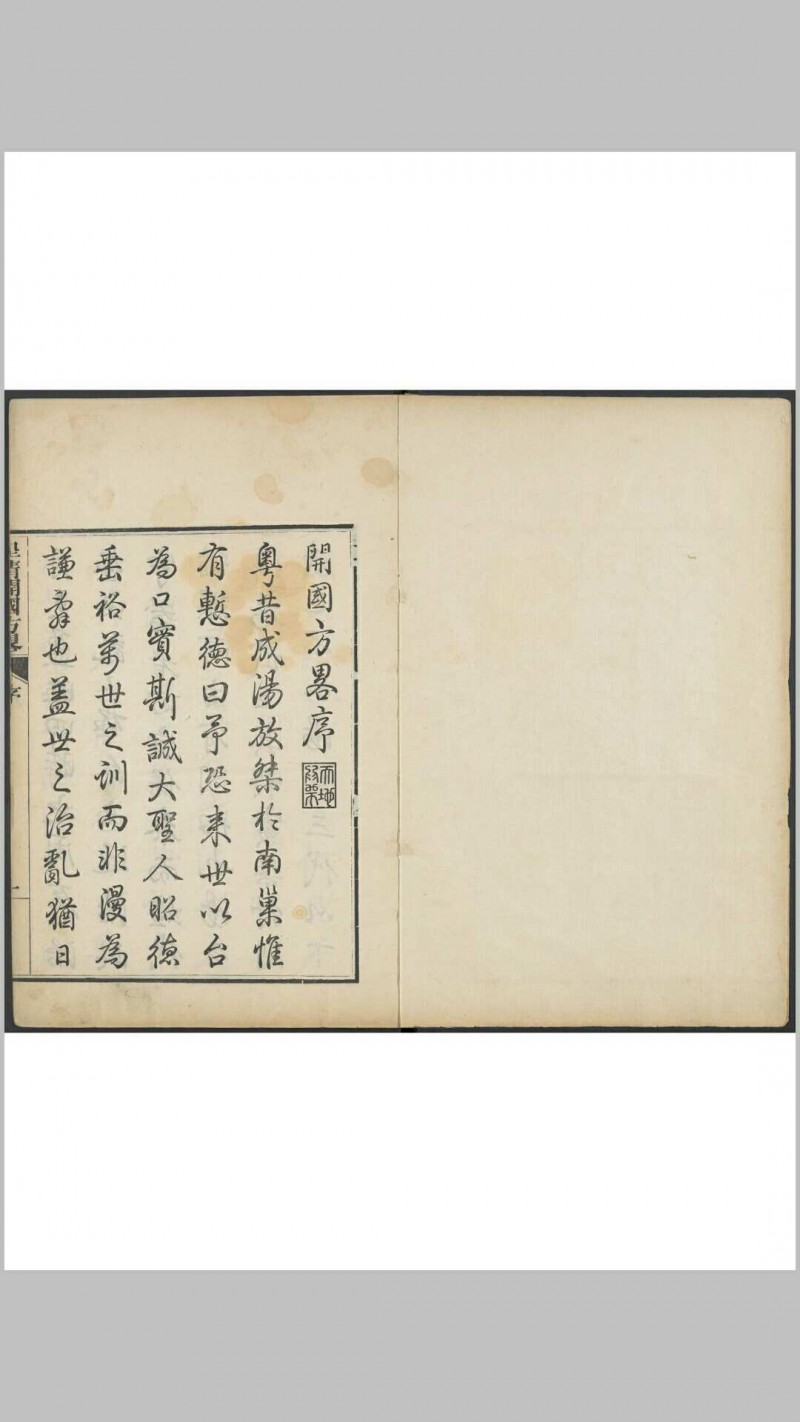 開國方畧序
粵昔成湯放桀於南巢惟
有慙德曰予恐来世以台
為口實斯誠大聖人昭德
垂裕萬世之訓而非漫為
謙辭也盖世之治亂猶日
皇清開國方畧
序
一